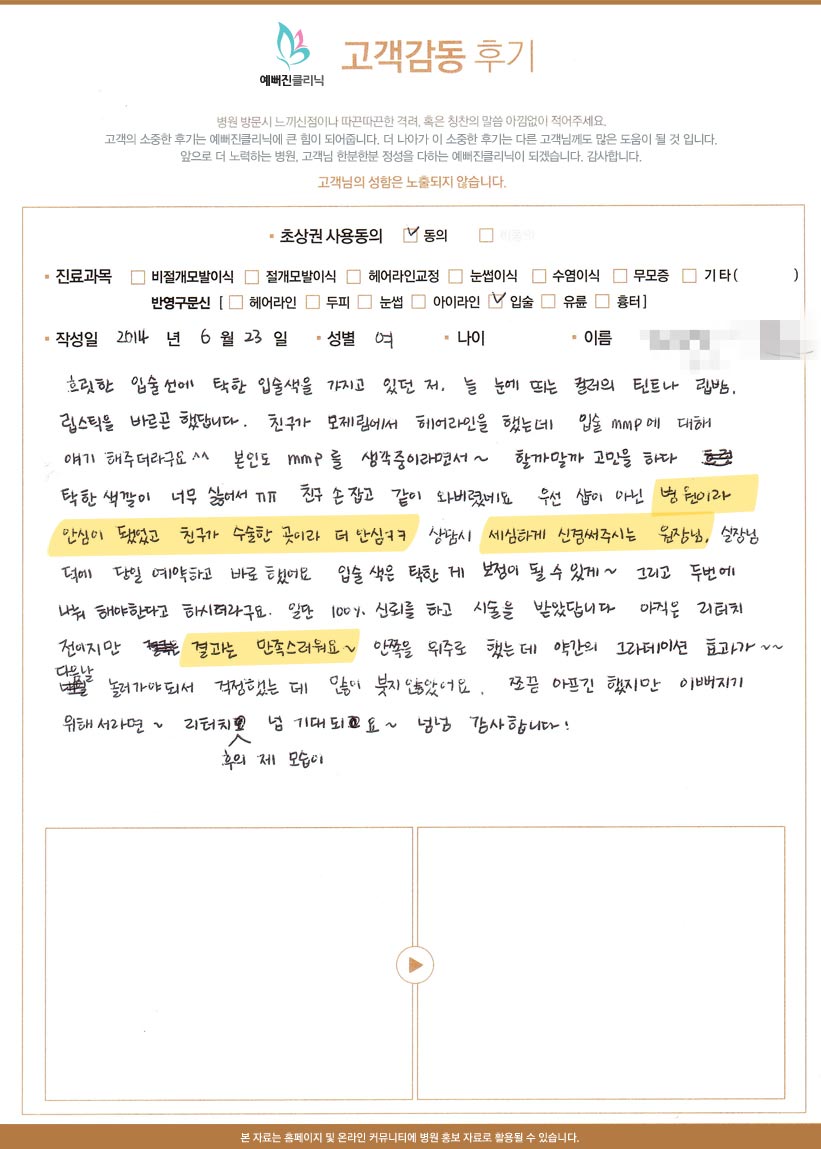 예뻐진클리닉
고객감동 후기
병원 방문시 느끼신점이나 따끈따끈한 격려, 혹은 칭찬의 말씀 아낌없이 적어주세요.
고객의 소중한 후기는 예뻐진클리닉에 큰 힘이 되어줍니다. 더 나아가 이 소중한 후기는 다른 고객님께도 많은 도움이 될 것 입니다.
앞으로 더 노력하는 병원, 고객님 한분한분 정성을 다하는 예뻐진클리닉이 되겠습니다. 감사합니다.
고객님의 성함은 노출되지 않습니다.
초상권 사용동의 동의 비동의
진료과목 비절개모발이식 절개모발이식 헤어라인교정 눈썹이식 수염이식 무모증 기타( )
반영구문신 [ 헤어라인 두피 눈썹 아이라인 입술 유륜 흉터 ]
작성일 2014 년 6 월 23 일 성별 여 나이 이름
흐릿한 입술선에 탁한 입술색을 가지고 있던 저. 늘 눈에 띄는 컬러의 틴트나 립밤,
립스틱을 바르곤 했답니다. 친구가 모제림에서 헤어라인을 했는데 입술 mmp에 대해
얘기 해주더라구요^^ 본인도 mmp를 생각중이라면서~ 할까말까 고민을 하다
탁한 색깔이 너무 싫어서ㅠㅠ 친구 손 잡고 같이 와버렸네요 우선 샵이 아닌 병원이라
안심이 됐었고 친구가 수술한 곳이라 더 안심ㅋㅋ 상담시 세심하게 신경써주시는 원장님, 실장님
덕에 당일 예약하고 바로 했어요 입술 색은 탁한 게 보정이 될 수 있게~ 그리고 두번에
나눠 해야한다고 하시더라구요. 일단 100% 신뢰를 하고 시술을 받았답니다 아직은 리터치
전이지만 결과는 만족스러워요~ 안쪽을 위주로 했는데 약간의 그라데이션 효과가~~
다음날 놀러가야되서 걱정했는데 많이 붓지 않았어요. 쪼끔 아프긴 했지만 이뻐지기
위해서라면~ 리터치 후의 제 모습이 넘 기대되요~ 넘넘 감사합니다!
본 자료는 홈페이지 및 온라인 커뮤니티에 병원 홍보 자료로 활용될 수 있습니다.